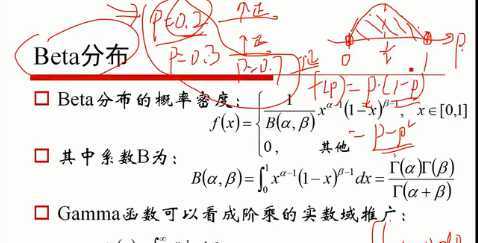 P=0.2 正
P=0.3 正
P=0.7
0 1 P
Beta分布
f(p)=p·(1-p)
= p-p²
Beta分布的概率密度:
f(x)={ 1/B(α,β) x^{α-1}(1-x)^{β-1}, x∈[0,1]
0, 其他
其中系数B为:
B(α,β)=∫₀¹ x^{α-1}(1-x)^{β-1}dx=Γ(α)Γ(β)/Γ(α+β)
Gamma函数可以看成阶乘的实数域推广: